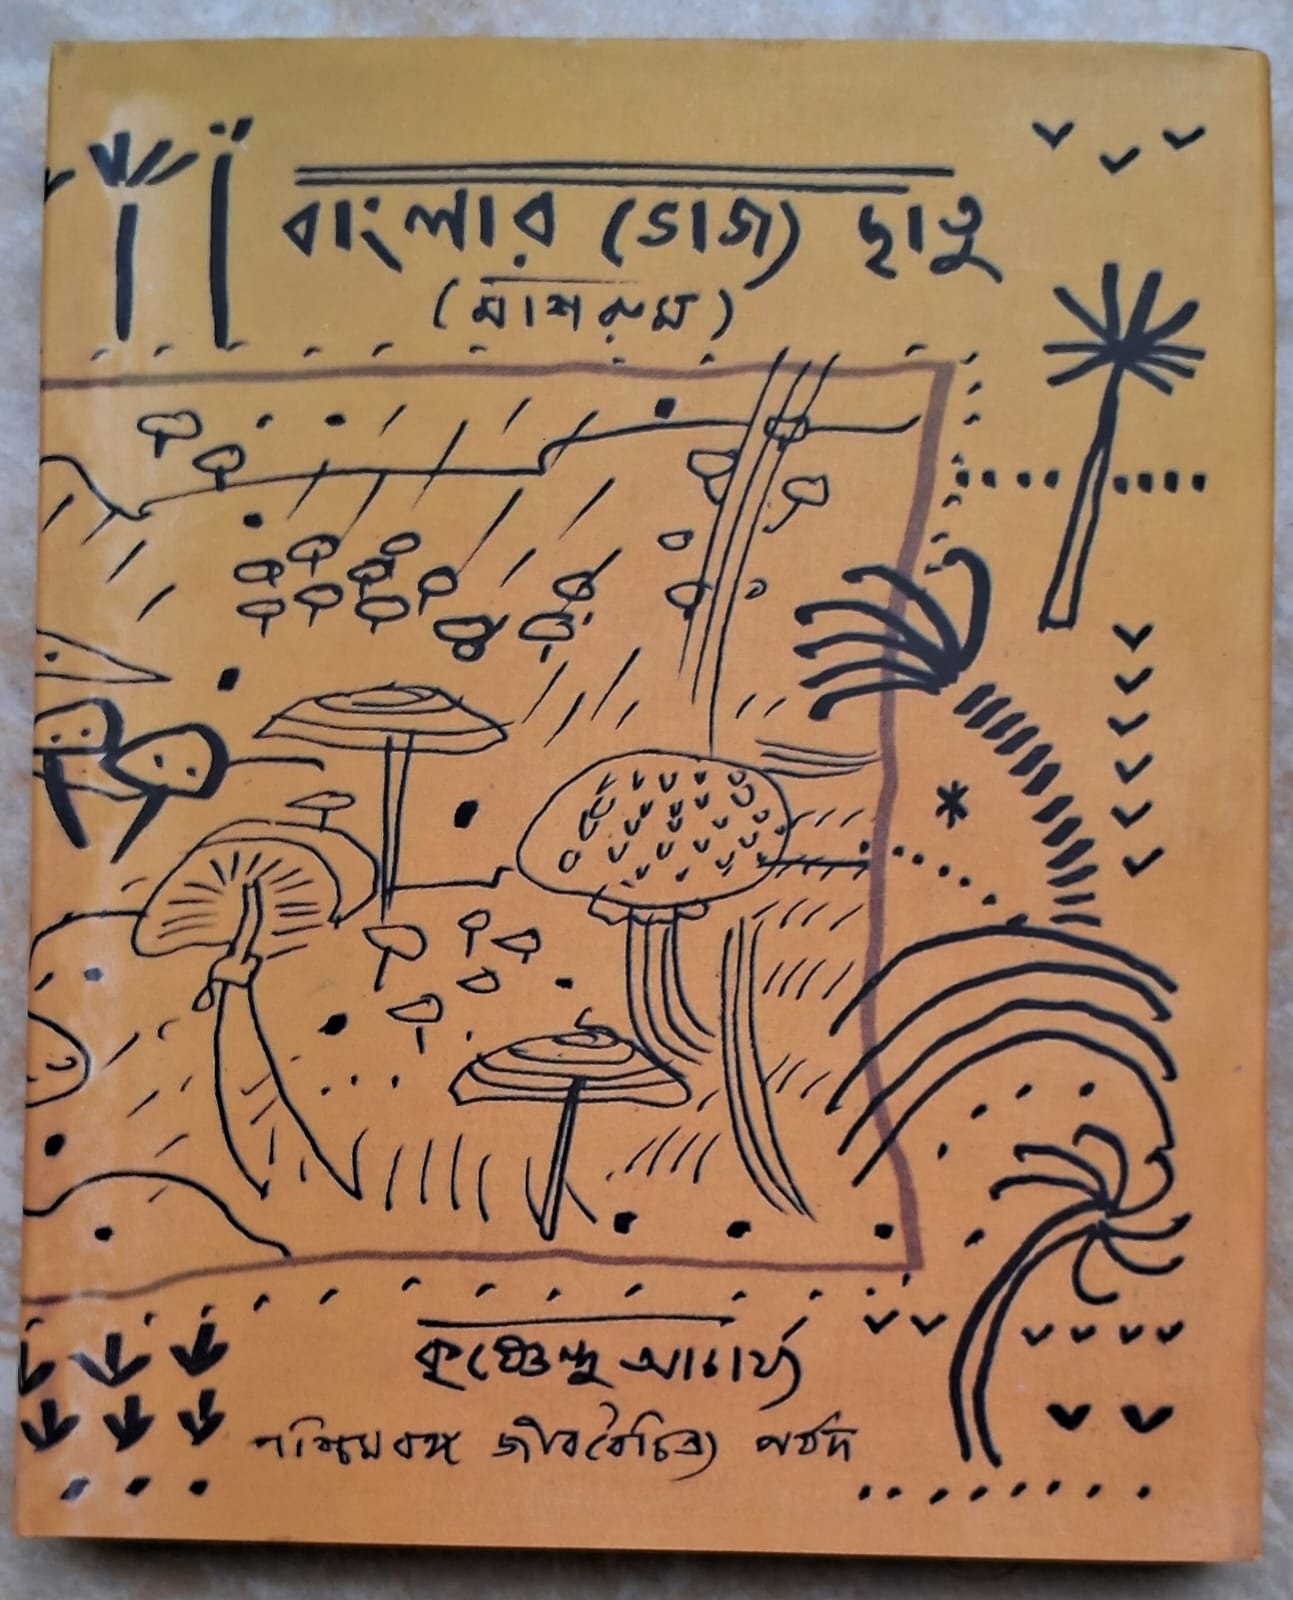 বাংলার ভোজ্য ছাতু
(মাশরুম)
কৃষ্ণেন্দু আচার্য্য
পশ্চিমবঙ্গ জীববৈচিত্র্য পর্ষদ